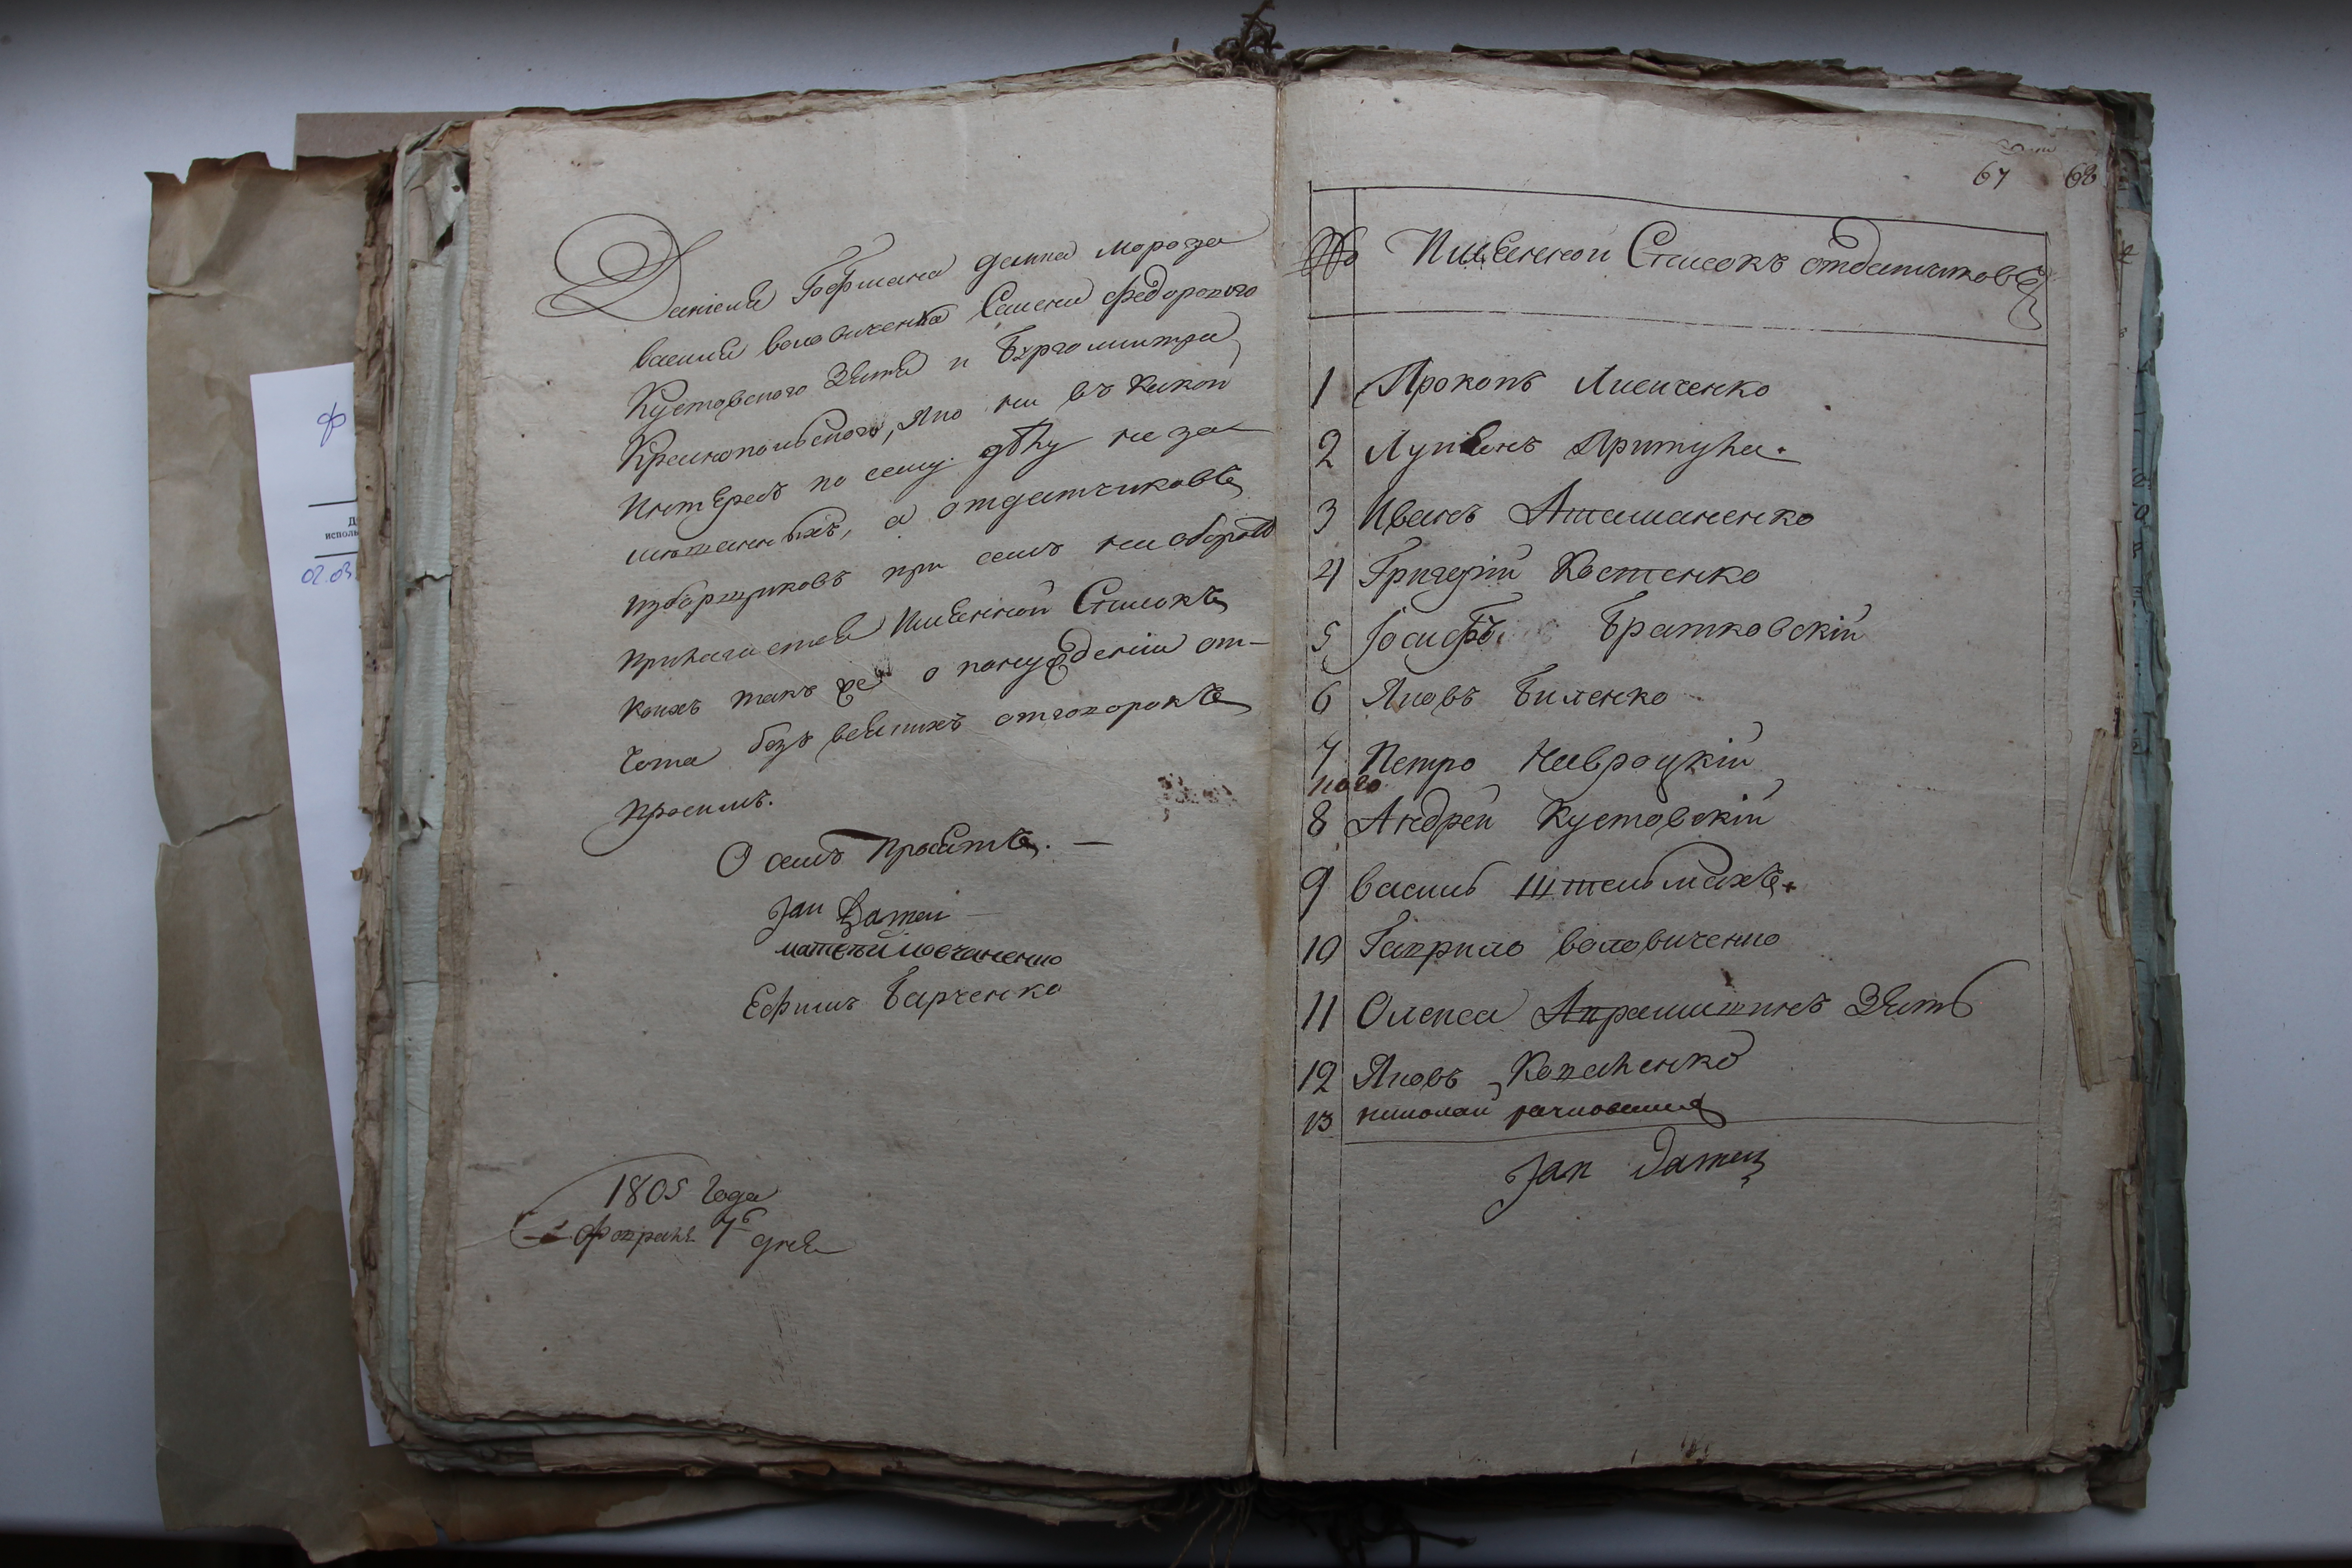 Даніеля Гофмана данила мороза
василя воловиченка Семена федорового
Кустовского Зятя и Бургоминтра
Краснопольского, яко ни въ какой
интересъ по сему дѣлу не за
мѣшанныхъ, а отдатчиковъ
изборщиковъ при семъ на оборотѣ
прилагается Имянной Списокъ
коихъ такъ же о понуждении от-
чота безъ всякихъ отговорокъ
Просимъ.
О семъ Просятъ. —
Jan
матвѣй мовчаненко
Ефимъ Барченко
1805 Года
Февраля 7б дня
67 68
№ Имянной Списокъ отдатчиковъ
1 Прокопъ Лисиченко
2 Лукянъ Притула.
3 Иванъ Атаманенко
4 Григорій Костенко
5 Іосифъ Братковскій
6 Яковъ Биленко
7 Петро Навроцкій
8 Андрей Кустовскій
9 василь Штельмахъ.
10 Гаврило воловиченко
11 Олекса Зять
12 Яковъ Коваленко
13 николай
Jan
ф
испол
02.03.